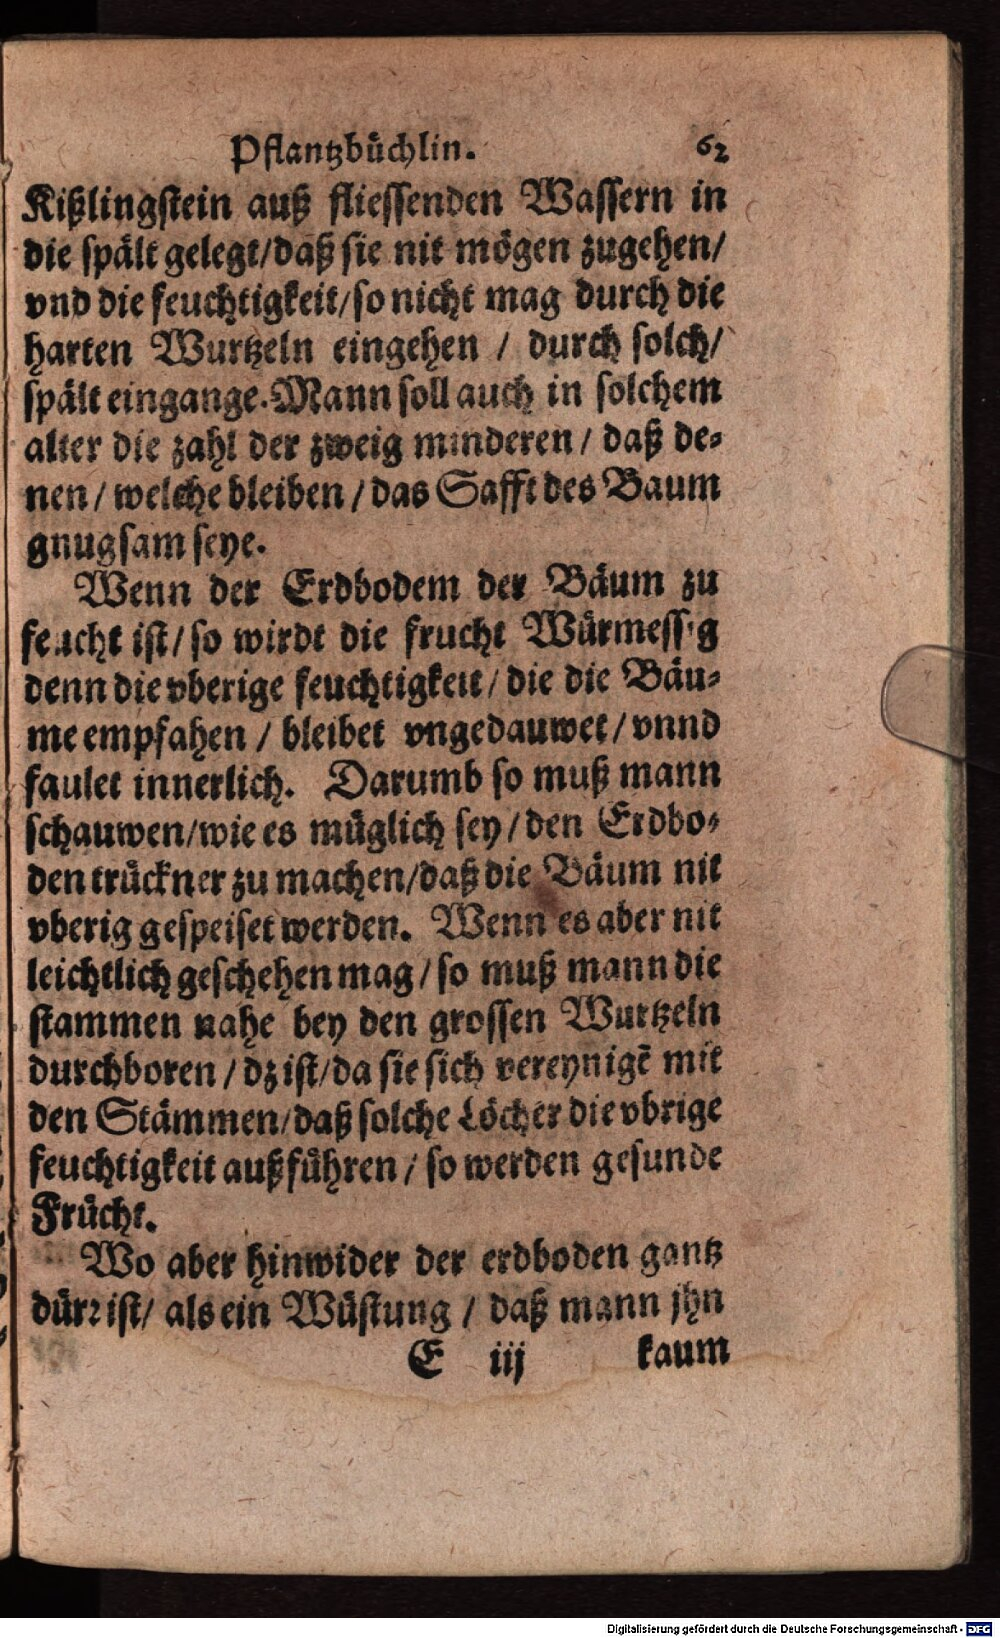 Pflantzbüchlin. 62
Kißlingstein auß fliessenden Wassern in
die spält gelegt/daß sie nit mögen zugehen/
vnd die feuchtigkeit/so nicht mag durch die
harten Wurtzeln eingehen / durch solch/
spält eingange. Mann soll auch in solchem
alter die zahl der zweig minderen / daß de-
nen / welche bleiben / das Safft des Baum
gnugsam seye.
Wenn der Erdbodem der Bäum zu
feucht ist/ so wirdt die frucht Würmessig
denn die vberige feuchtigkeit / die die Bäu-
me empfahen / bleibet vngedauwet / vnnd
faulet innerlich. Darumb so muß mann
schauwen/wie es müglich sey / den Erdbo-
den trückner zu machen/daß die Bäum nit
vberig gespeiset werden. Wenn es aber nit
leichtlich geschehen mag / so muß mann die
stammen nahe bey den grossen Wurtzeln
durchboren / dz ist/ da sie sich vereynigẽ mit
den Stämmen/daß solche Löcher die vbrige
feuchtigkeit außführen / so werden gesunde
Frücht.
Wo aber hinwider der erdboden gantz
dürr ist/ als ein Wüstung / daß mann jhn
E iij kaum
Digitalisierung gefördert durch die Deutsche Forschungsgemeinschaft - DFG